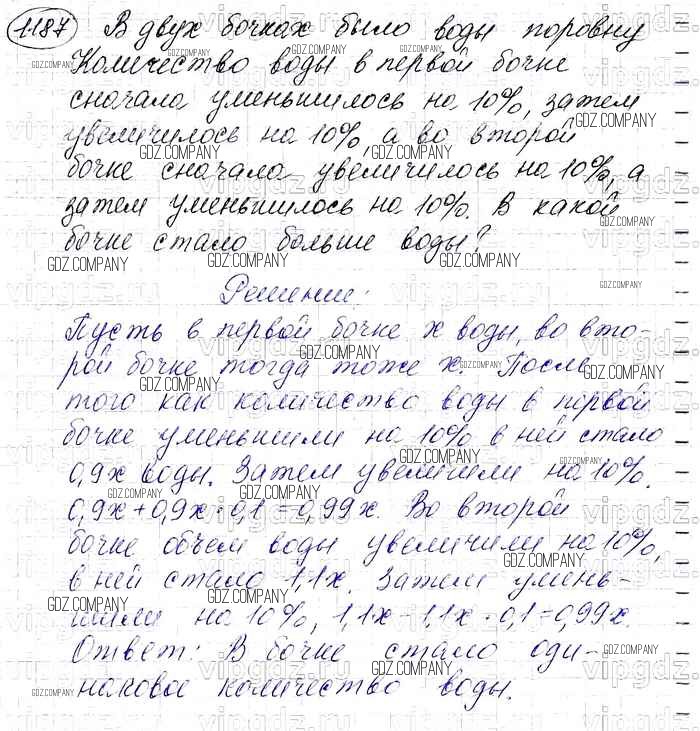 1187 В двух бочках было воды поровну
Количество воды в первой бочке
сначала уменьшилось на 10%, затем
увеличилось на 10%, а во второй
бочке сначала увеличилось на 10%, а
затем уменьшилось на 10%. В какой
бочке стало больше воды?
Решение:
Пусть в первой бочке x воды, во вто-
рой бочке тогда тоже x. После
того как количество воды в первой
бочке уменьшили на 10% в ней стало
0,9x воды. Затем увеличили на 10%.
0,9x + 0,9x · 0,1 = 0,99x. Во второй
бочке объем воды увеличили на 10%,
в ней стало 1,1x. Затем умень-
шили на 10%, 1,1x - 1,1x · 0,1 = 0,99x.
Ответ: В бочке стало оди-
наковое количество воды.